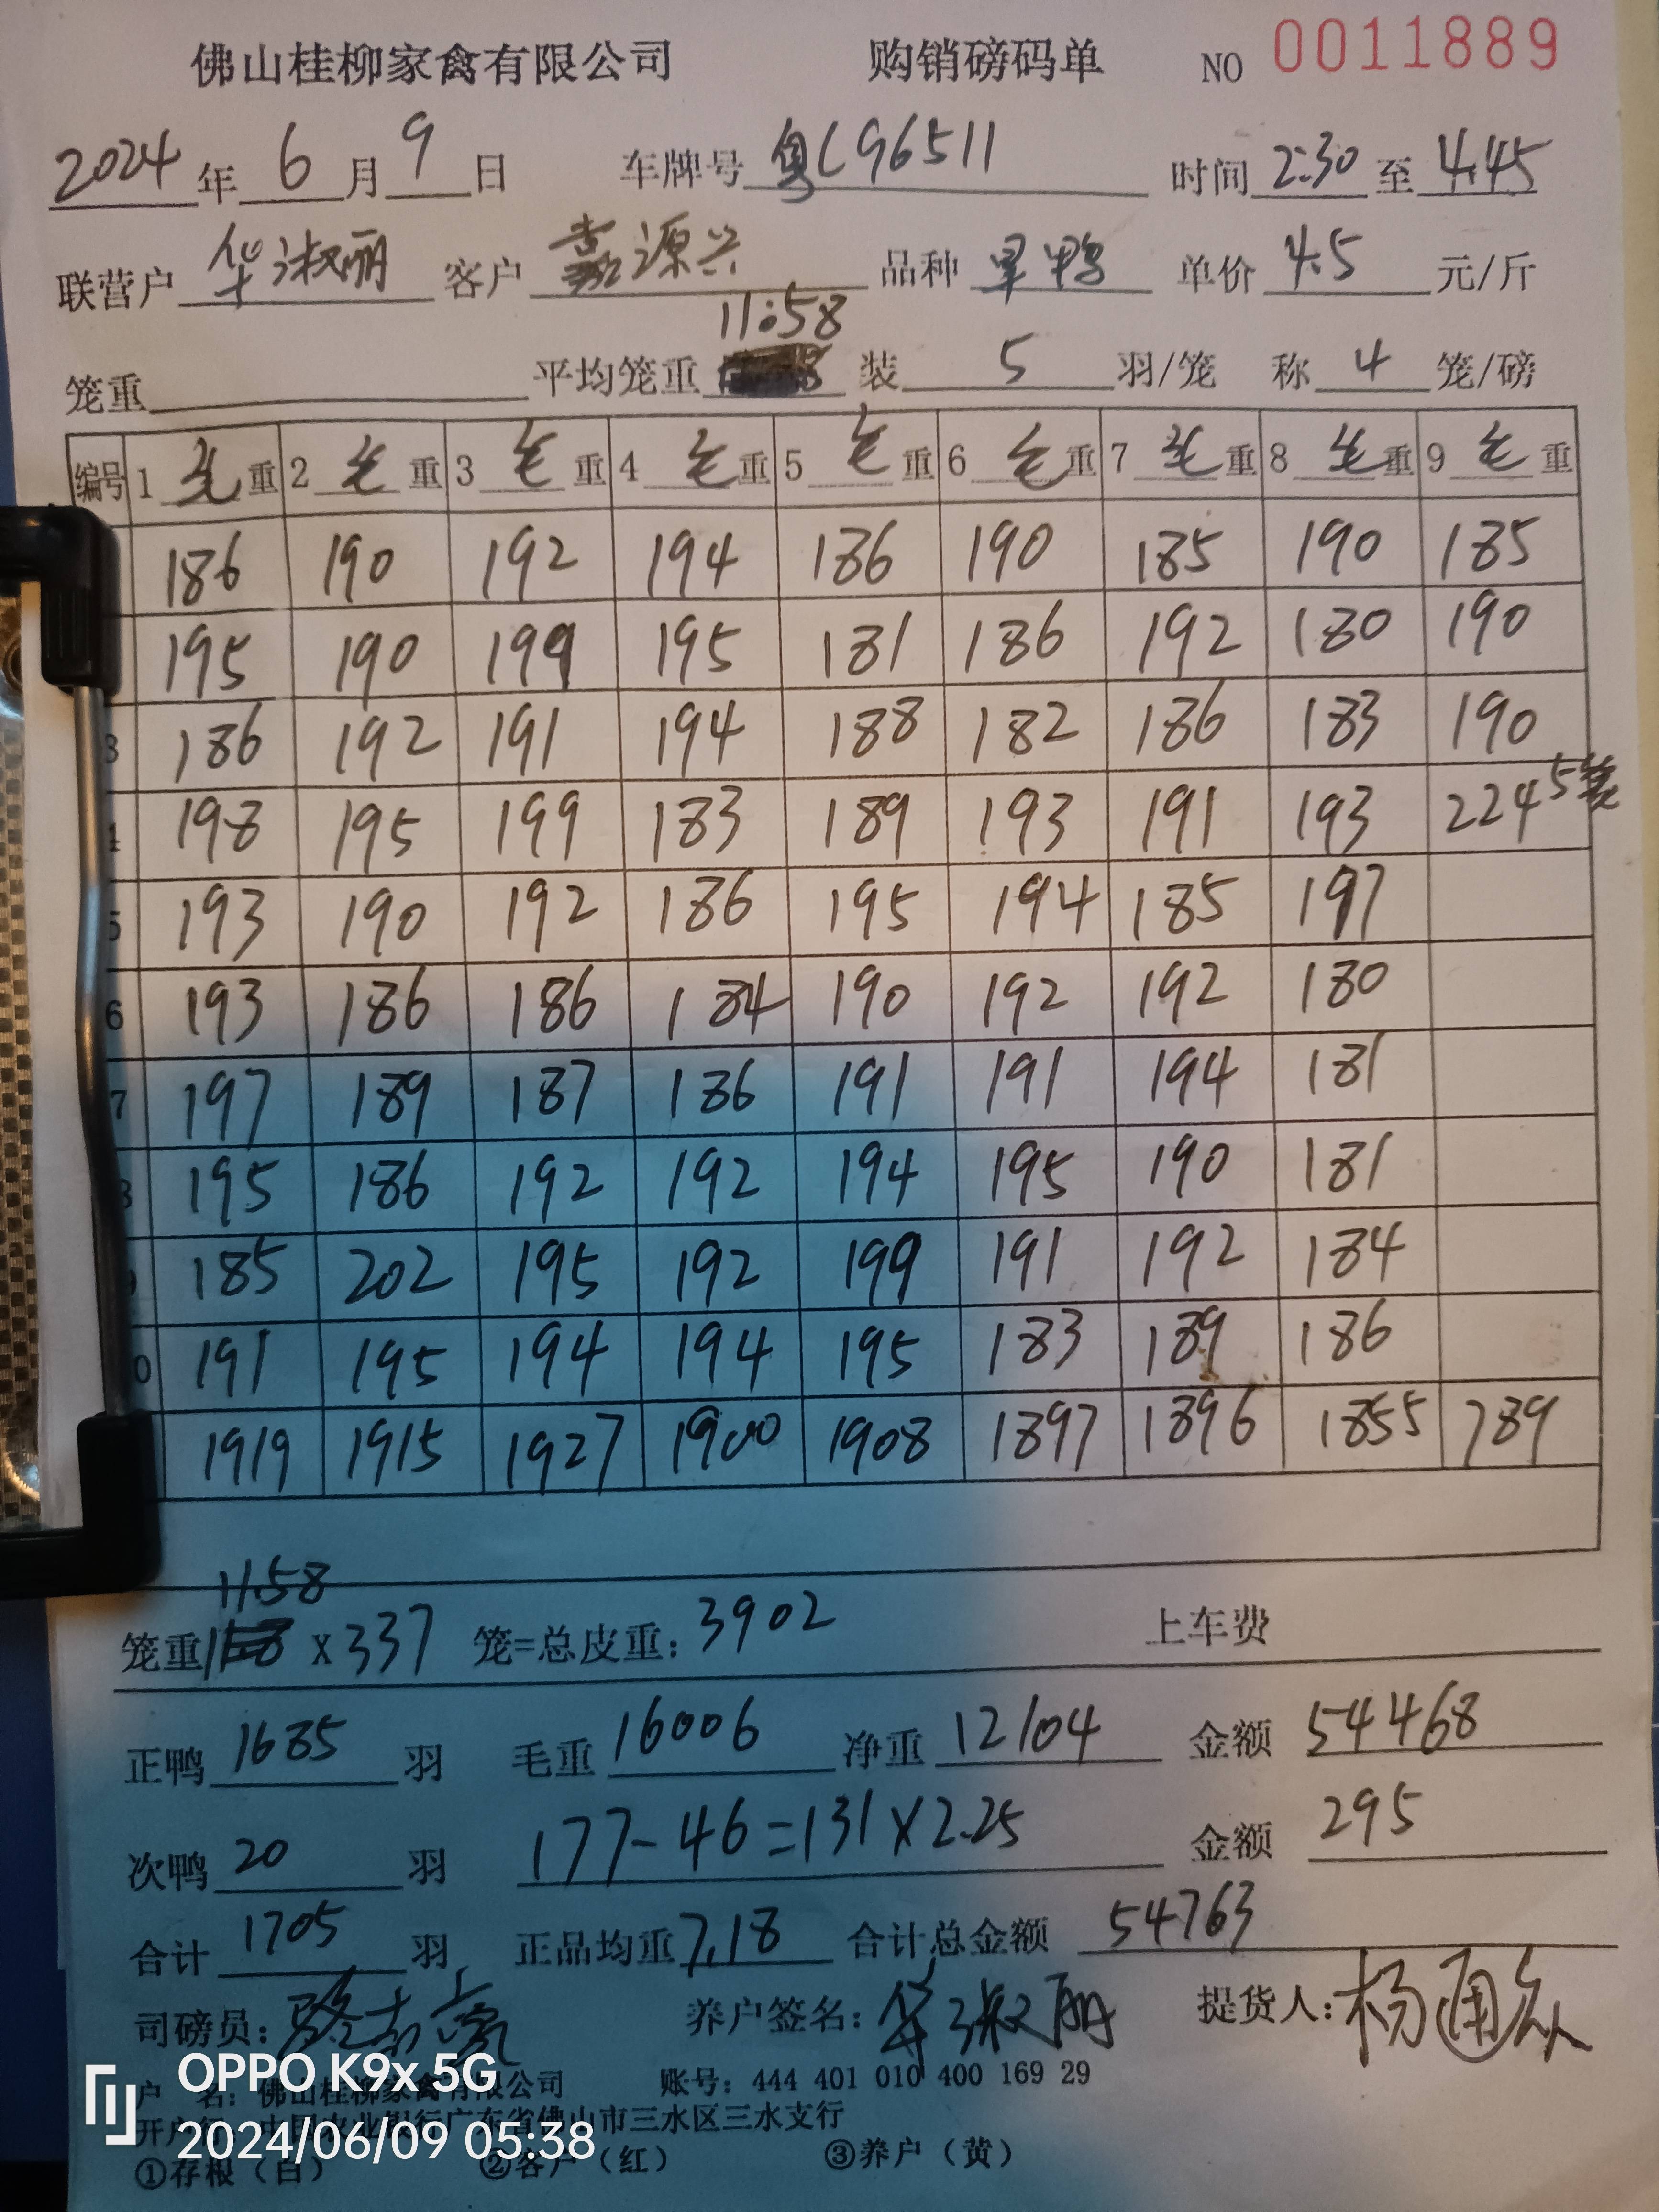 佛山桂柳家禽有限公司 购销磅码单 NO 0011889
2024年6月9日 车牌号 粤C96511 时间 2:30 至 4:45
联营户 华淑丽 客户 嘉源兴 品种 旱鸭 单价 4.5 元/斤
11:58
笼重 平均笼重 装 5 羽/笼 称 4 笼/磅
编号 1 毛重 2 毛重 3 毛重 4 毛重 5 毛重 6 毛重 7 毛重 8 毛重 9 毛重
186 190 192 194 186 190 185 190 185
195 190 199 195 181 186 192 180 190
3 186 192 191 194 188 182 186 183 190
4 198 195 199 183 189 193 191 193 224 5笼
5 193 190 192 186 195 194 185 197
6 193 186 186 184 190 192 192 180
7 197 189 187 186 191 191 194 181
8 195 186 192 192 194 195 190 181
9 185 202 195 192 199 191 192 184
0 191 195 194 194 195 183 189 186
1919 1915 1927 1900 1908 1897 1896 1855 789
11.58
笼重 X 337 笼=总皮重: 3902 上车费
正鸭 1685 羽 毛重 16006 净重 12104 金额 54468
次鸭 20 羽 177-46=131X2.25 金额 295
合计 1705 羽 正品均重 7.18 合计总金额 54763
司磅员: 养户签名: 华淑丽 提货人: 杨
户 名: 佛山桂柳家禽有限公司 账号: 444 401 010 400 169 29
开户行: 中国农业银行广东省佛山市三水区三水支行
①存根（白） ②客户（红） ③养户（黄）
OPPO K9x 5G
2024/06/09 05:38